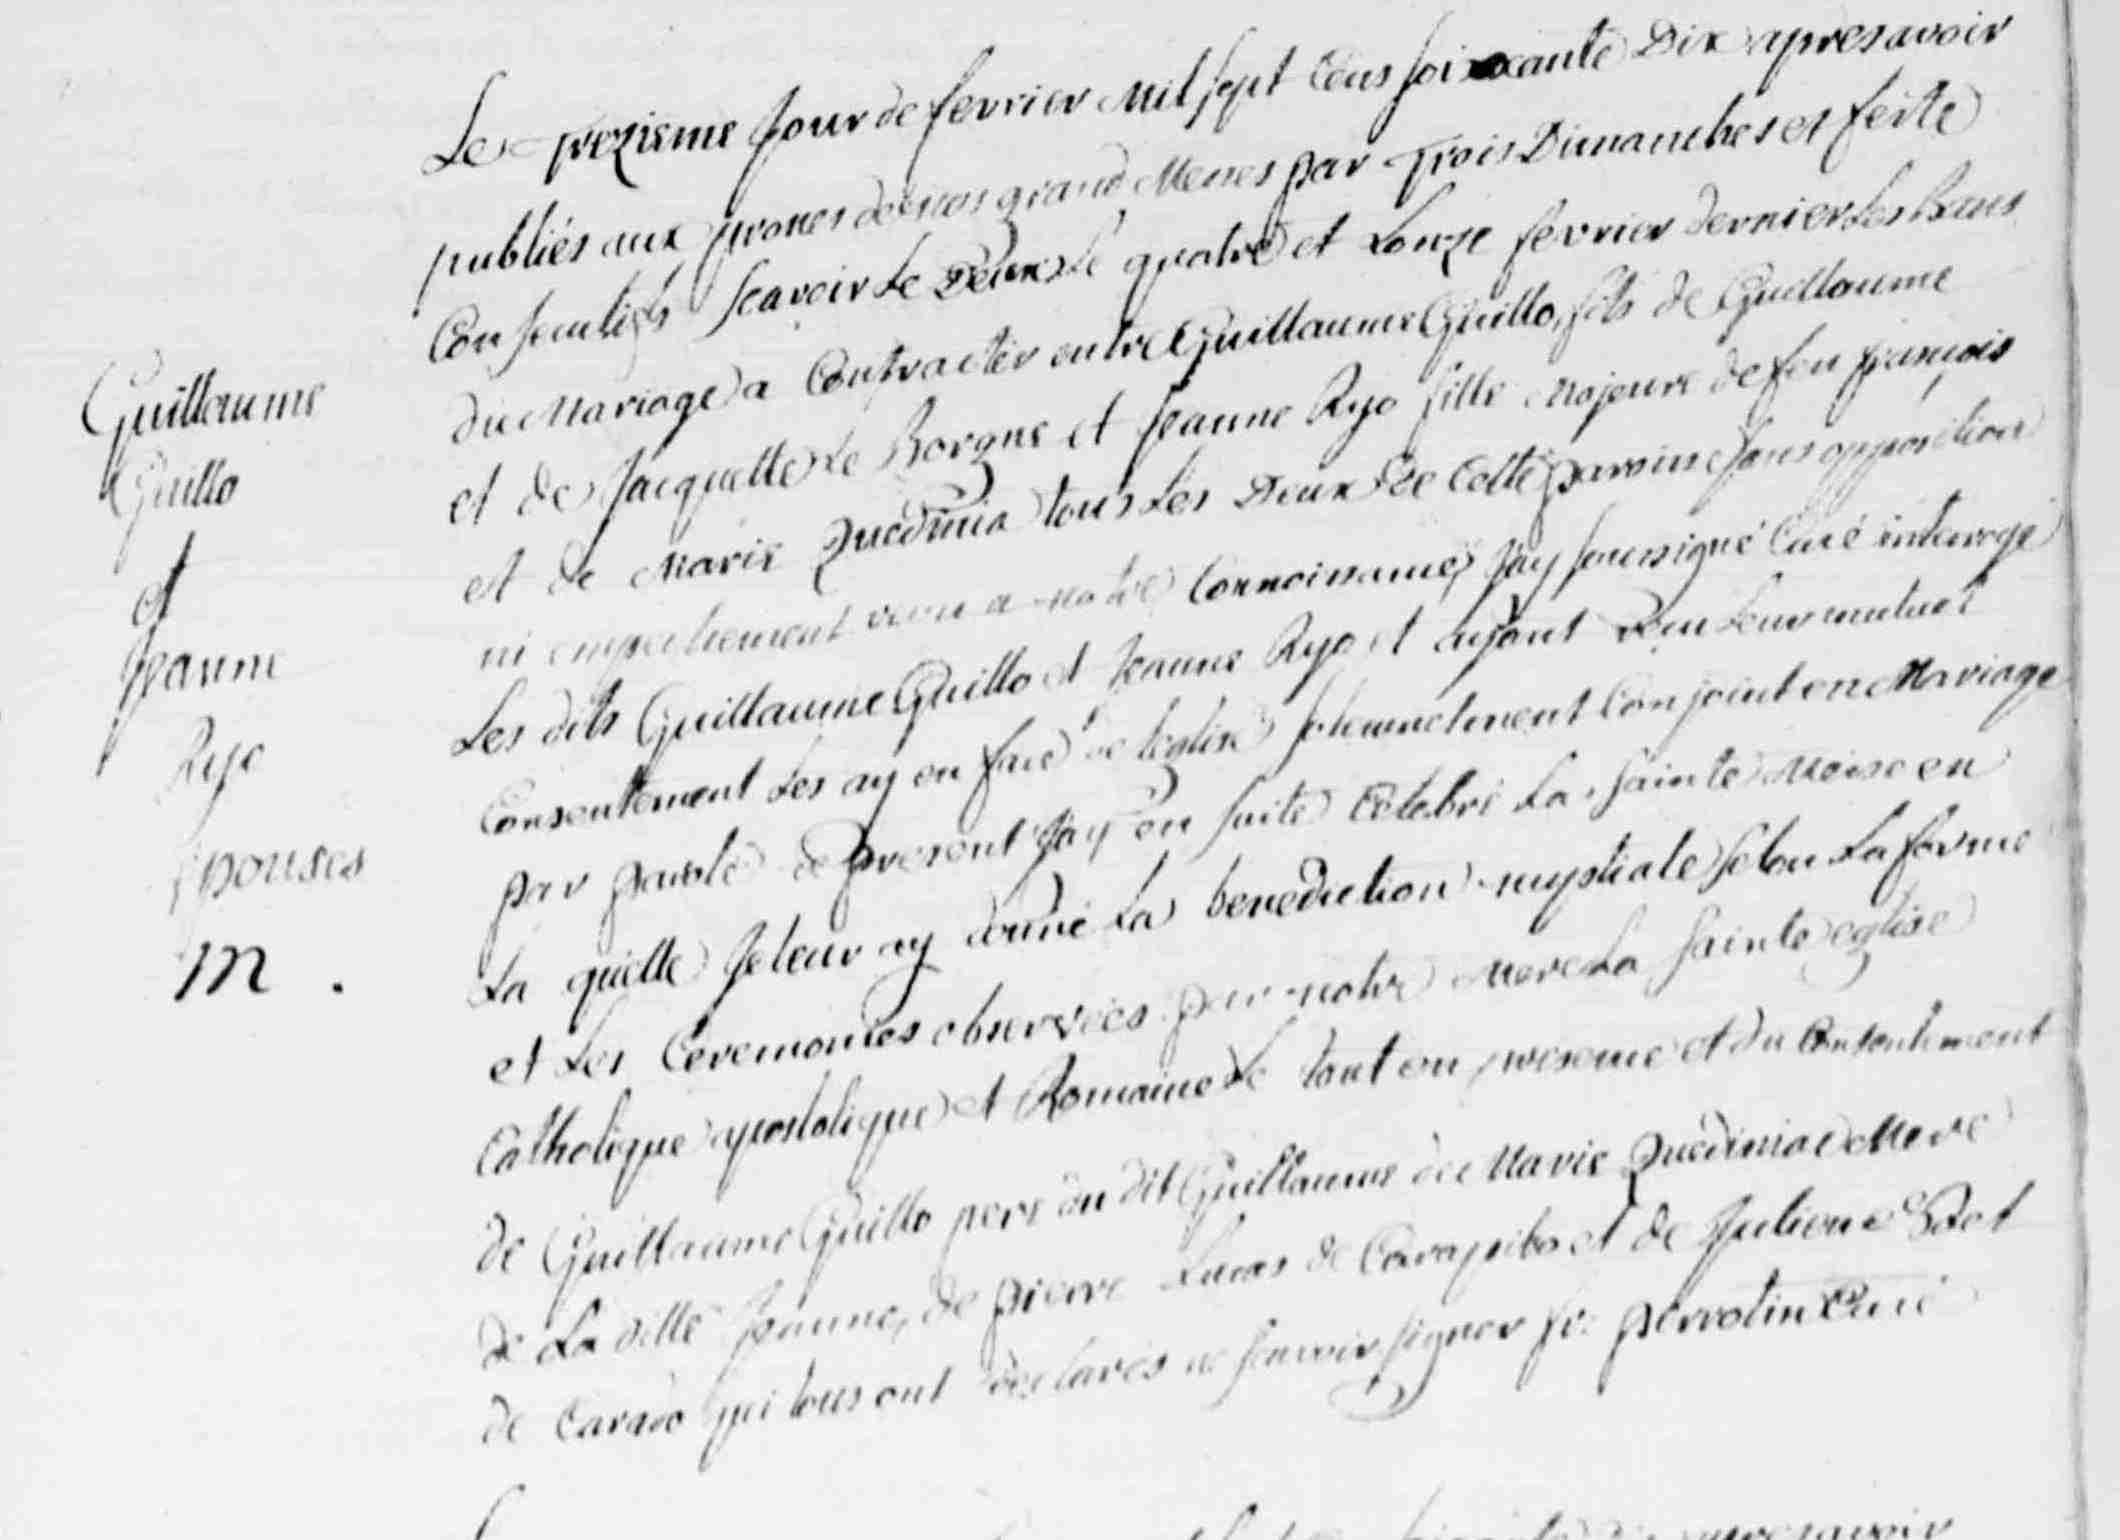 Guillaume
Guillo
et
Jeanne
Ryo
épouses
M .
Le trezieme Jour de fevrier Mil sept Cens soixante Dix apres avoir
publiés aux prones de nos grand Messes par Trois Dimanches et feste
Consecutifs scavoir Le Deux Le quatre et Lonze fevrier dernier Les Bans
du Mariage a Contracter entre Guillaume Guillo, fils de Guillaume
et de Jacquette Le Borgne et Jeanne Ryo fille Majeure de feu françois
et de Marie Quedinia tous Les Deux de Cette paroisse sans opposition
ni empechement venu a notre Connoissance, Jay soussigné Curé interrogé
Les dits Guillaume Guillo et Jeanne Ryo et ayant reçu Leur mutuel
Consentement Les ay en face de leglise solemnelment Conjoint en Mariage
par parole de present Jay en suite Celebré La sainte Messe en
La quelle Je leur ay donné La benediction nuptiale selon La forme
et Les Ceremonies observées par notre Mere La sainte eglise
Catholique apostolique et Romaine Le tout en presence et du Consentement
de Guillaume Guillo pere du dit Guillaume de Marie Quediniac Mere
de La ditte Jeanne, de pierre Lucas de Carapibo et de Juliene
de Carado qui tous ont declarés ne scavoir signer fr: perrotin Curé